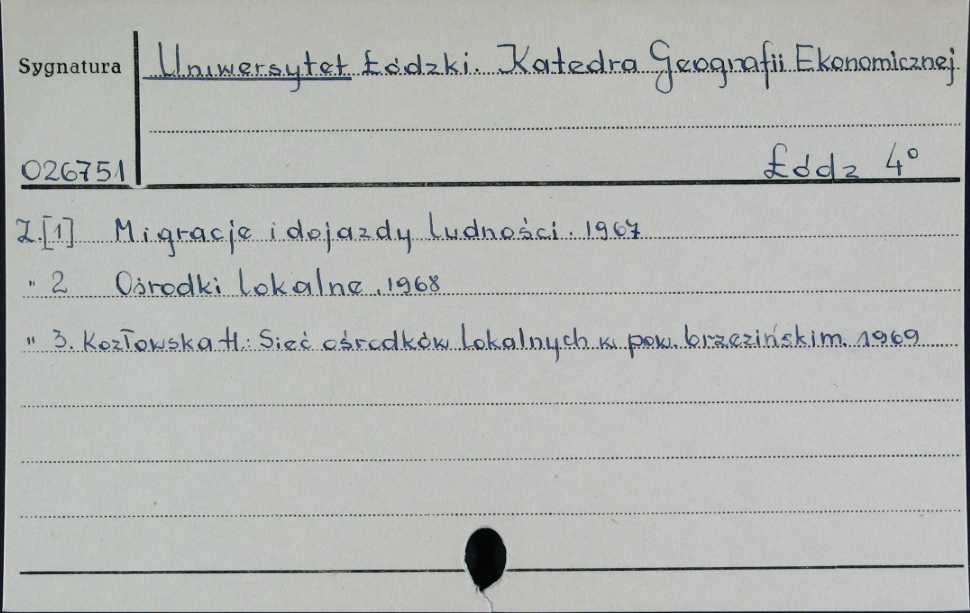 Sygnatura Uniwersytet Łódzki. Katedra Geografii Ekonomicznej
026751 Łódz 4°
Z.[1] Migracje i dojazdy ludności. 1967
" 2 Ośrodki lokalne. 1968
" 3. Kozłowska H.: Sieć ośrodków lokalnych w pow. brzezińskim. 1969